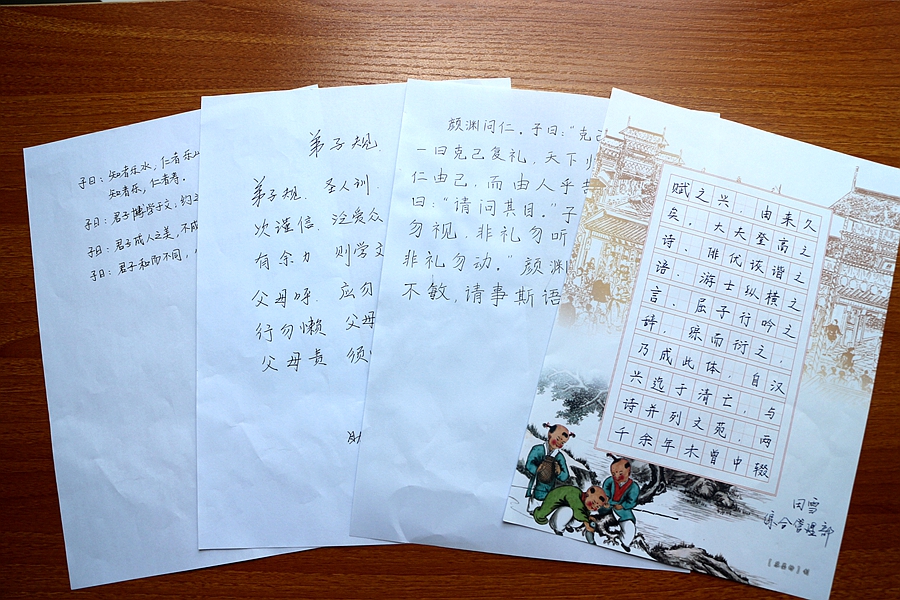 子曰：知者乐水，仁者乐山
知者乐，仁者寿。
子曰：君子博学于文，约之
子曰：君子成人之美，不成
子曰：君子和而不同，
弟子规
弟子规 圣人训
次谨信 泛爱众
有余力 则学文
父母呼 应勿
行勿懒 父母
父母责 须
财
颜渊问仁。子曰：“克己
一日克己复礼，天下归
仁由己，而由人乎哉
曰：“请问其目。”子
勿视，非礼勿听
非礼勿动。”颜渊
不敏，请事斯语
赋之兴，由来久
矣，大夫登高之
诗，俳优诙谐之
语，游士纵横之
言，屈子行吟之
辞，综而衍之，
乃成此体，自汉
兴迄于清亡，与
诗并列文苑，两
千余年未曾中辍
田雪
综合管理部